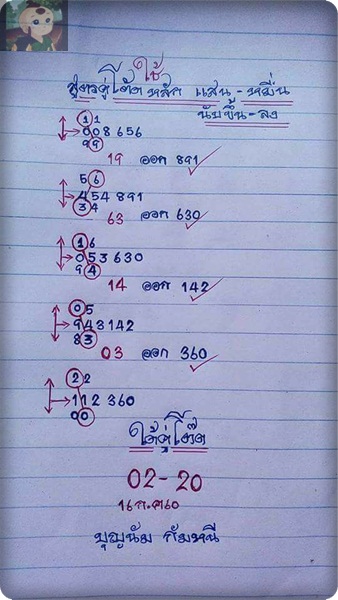 ใช้
สูตรคู่โต๊ด หลัก แสน - หมื่น
นับขึ้น - ลง
11
008656
99
19 ออก 891
56
454891
34
63 ออก 630
16
053630
94
14 ออก 142
05
943142
83
03 ออก 360
22
112360
00
ได้คู่โต๊ด
02-20
16 ก.ค 60
บุญนัม กัมหนี